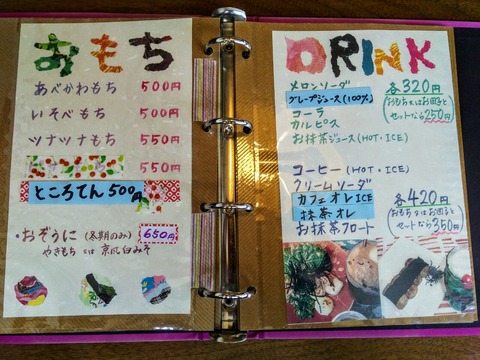 おもち
あべかわもち 500円
いそべもち 500円
ツナツナもち 550円
550円
ところてん 500円
・おぞうに (冬期のみ) 650円
やきもち 京風白みそ
DRINK
メロンソーダ
グレープジュース(100%)
コーラ
カルピス
お抹茶ジュース(HOT・ICE)
各320円
おもち又はお団子と
セットなら250円
コーヒー(HOT・ICE)
クリームソーダ
カフェオレ ICE
抹茶オレ
お抹茶フロート
各420円
おもち又はお団子と
セットなら350円